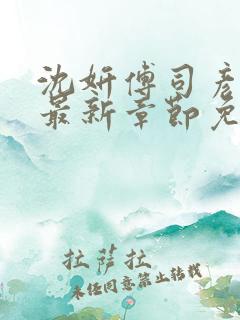 沈妍傅司彦
最新章节免
拉萨拉
未经同意禁止转载